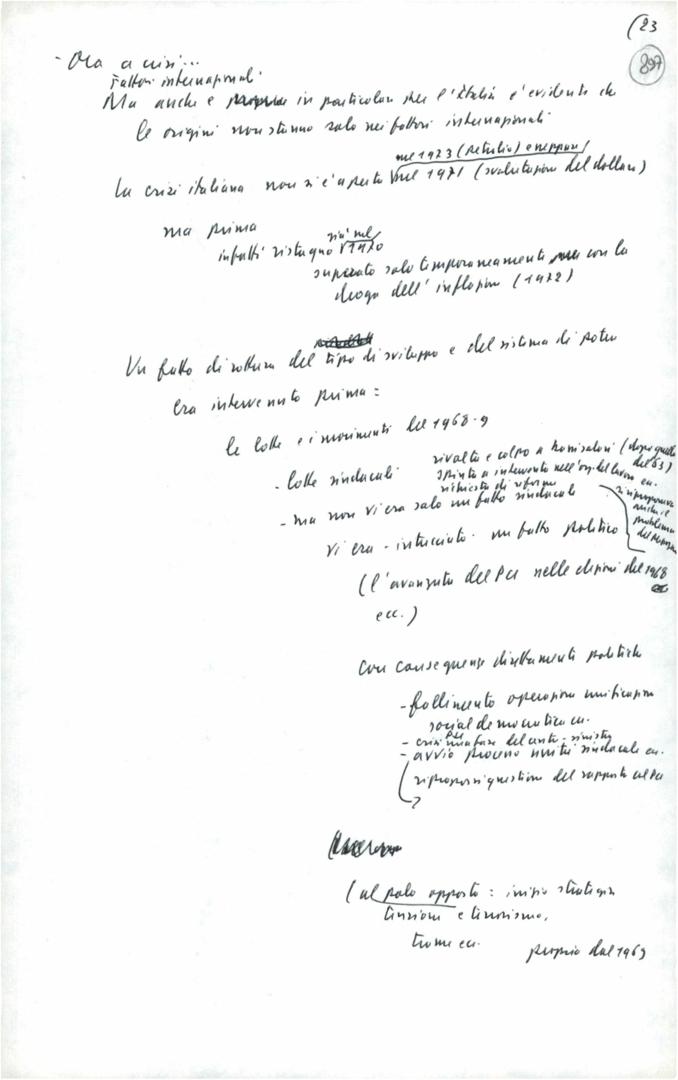 (23
897
- Ora a crisi...
Fattori internazionali.
Ma anche e in particolare per l'Italia è evidente che
le origini non stanno solo nei fattori internazionali.
nel 1973 (petrolio) e neppure
La crisi italiana non si è aperta nel 1971 (svalutazione del dollaro)
ma prima
già nel
infatti ristagno 1970
superato solo temporaneamente con la
droga dell'inflazione (1972)
Un fatto di rottura del tipo di sviluppo e del sistema di potere
era intervenuto prima:
le lotte e i movimenti del 1968-9
- lotte sindacali
rivalta e colpo a (dopo quelle
del 63)
spinta a intervento nell'org. del lavoro ecc.
richiesta di riforme
- ma non vi era solo un fatto sindacale
si riproponeva
anche il
problema
del
vi era - intrecciato - un fatto politico
(l'avanzata del PCI nelle elezioni del 1968
ecc.)
con conseguenze direttamente politiche
- fallimento operazione unificazione
socialdemocratica ecc.
- crisi fase del centro-sinistra
- avvio processo unità sindacale ecc.
riproporsi questione del rapporto col PCI
(al polo opposto: inizio strategia
tensione e terrorismo,
trame ecc.
proprio dal 1969